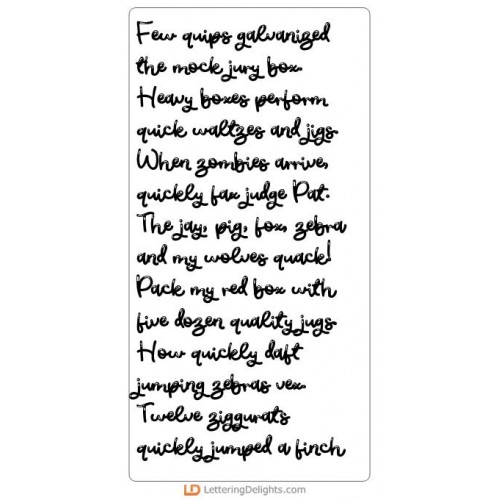 Few quips galvanized
the mock jury box.
Heavy boxes perform
quick waltzes and jigs.
When zombies arrive,
quickly fax judge Pat.
The jay, pig, fox, zebra
and my wolves quack!
Pack my red box with
five dozen quality jugs.
How quickly daft
jumping zebras vex.
Twelve ziggurats
quickly jumped a finch
LD LetteringDelights.com